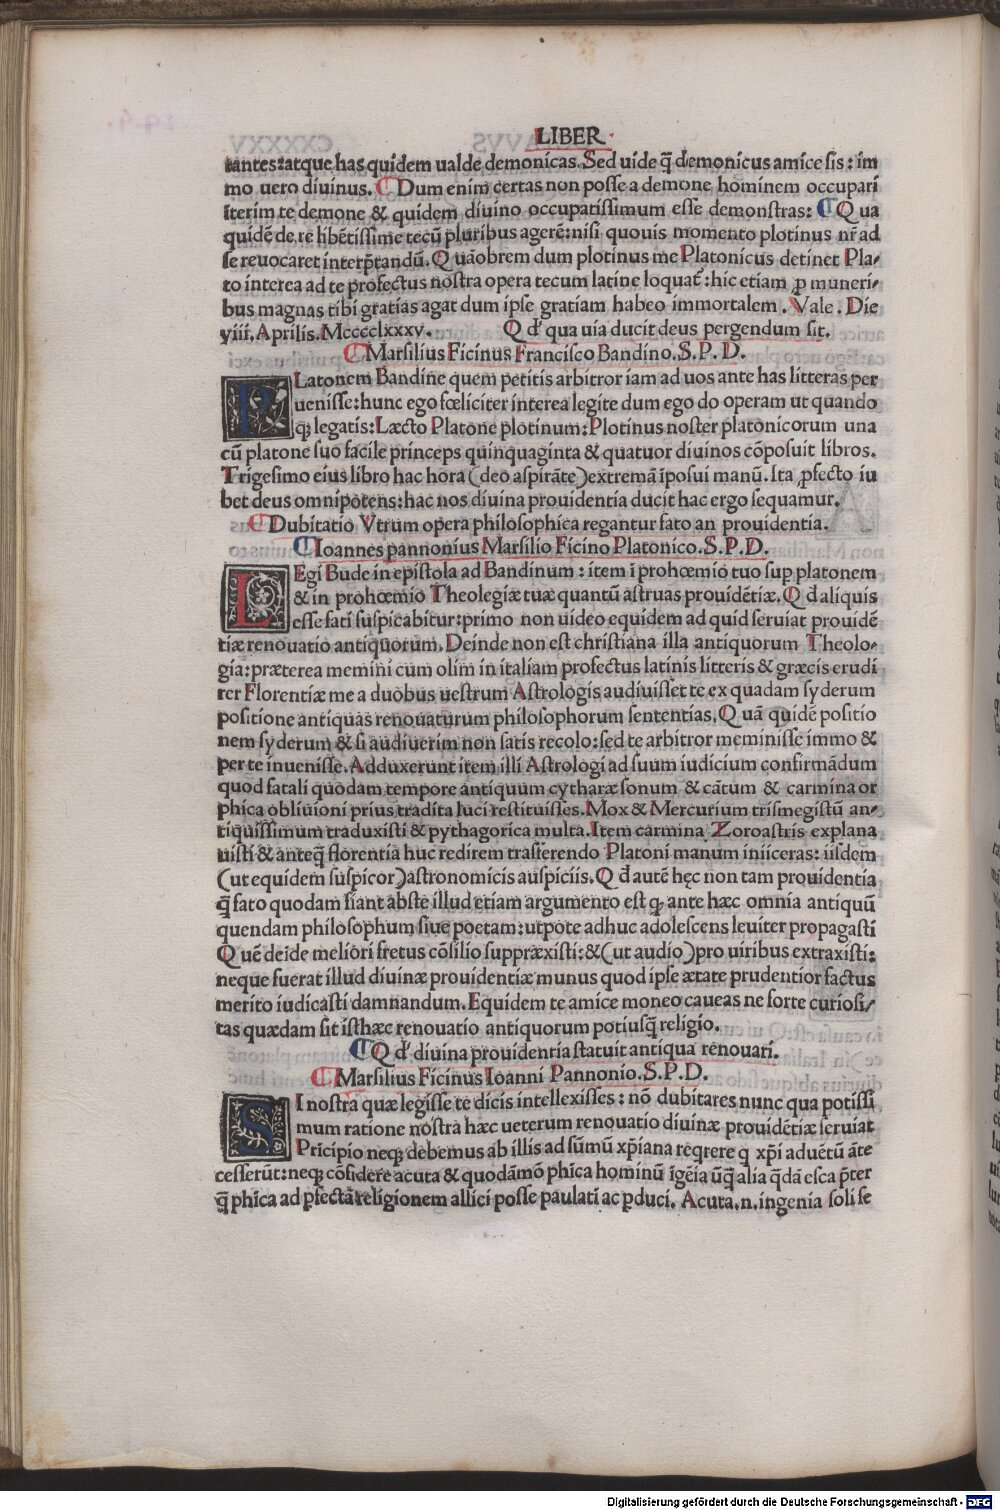 LIBER
tantes:atque has quidem ualde demonicas. Sed uide q̄ demonicus amice sis: im
mo uero diuinus. Dum enim certas non posse a demone hominem occupari
īterim te demone & quidem diuino occupatissimum esse demonstras: Qua
quidē de re libētissime tecū pluribus agerē:nisi quouis momento plotinus nr̄ ad
se reuocaret interp̄tandū. Quāobrem dum plotinus me Platonicus detinet Pla-
to interea ad te profectus nostra opera tecum latine loquat᷑: hic etiam ꝓ muneri-
bus magnas tibi gratias agat dum ipse gratiam habeo immortalem. Vale. Die
yiii. Aprilis. Mcccclxxxv. Q d̕ qua uia ducit deus pergendum sit.
Marsilius Ficinus Francisco Bandino. S. P. D.
PLatonem Bandine quem petitis arbitror iam ad uos ante has litteras per
uenisse:hunc ego fœliciter interea legite dum ego do operam ut quando
q; legatis: Læcto Platone plotinum: Plotinus noster platonicorum una
cū platone suo facile princeps quinquaginta & quatuor diuinos cōposuit libros.
Trigesimo eius libro hac hora (deo aspirāte) extremā īposui manū. Ita ꝓfecto iu
bet deus omnipotens: hac nos diuina prouidentia ducit hac ergo sequamur.
Dubitatio Vtrum opera philosophica regantur fato an prouidentia.
Ioannes pannonius Marsilio Ficino Platonico. S. P. D.
LEgi Bude in epistola ad Bandinum: item ī prohœmio tuo sup platonem
& in prohœmio Theologiæ tuæ quantū astruas prouidētiæ. Q d̄ aliquis
esse fati suspicabitur: primo non uideo equidem ad quid seruiat prouidē
tiæ renouatio antiquorum. Deinde non est christiana illa antiquorum Theolo-
gia: præterea memini cum olim in italiam profectus latinis litteris & græcis erudi
rer Florentiæ me a duobus uestrum Astrologis audiuisse te ex quadam syderum
positione antiquas renouaturum philosophorum sententias. Quā quidē positio
nem syderum & si audiuerim non satis recolo: sed te arbitror meminisse immo &
per te inuenisse. Adduxerunt item illi Astrologi ad suum iudicium confirmādum
quod fatali quodam tempore antiquum cytharæ sonum & cātum & carmina or
phica obliuioni prius tradita luci restituisses. Mox & Mercurium trismegistū an-
tiquissimum traduxisti & pythagorica multa. Item carmina Zoroastris explana
uisti & anteq̄ florentia huc redirem trāsferendo Platoni manum iniiceras: iisdem
(ut equidem suspicor) astronomicis auspiciis. Q d̄ autē hęc non tam prouidentia
q̄ fato quodam fiant abs te illud etiam argumento est q; ante hæc omnia antiquū
quendam philosophum siue poetam: utpote adhuc adolescens leuiter propagasti
Quē deide meliori fretus cōsilio suppræxisti: & (ut audio) pro uiribus extraxisti:
neque fuerat illud diuinæ prouidentiæ munus quod ipse ætate prudentior factus
merito iudicasti damnandum. Equidem te amice moneo caueas ne forte curiosi-
tas quædam sit isthæc renouatio antiquorum potiusq̄ religio.
Q d̕ diuina prouidentia statuit antiqua renouari.
Marsilius Ficinus Ioanni Pannonio. S. P. D.
SI nostra quæ legisse te dicis intellexisses: nō dubitares nunc qua potissi
mum ratione nostra hæc ueterum renouatio diuinæ prouidētiæ seruiat
Pricipio neq; debemus ab illis ad sūmū xp̄iana reqrere q xp̄i aduētū āte
cesserūt: neq; cōfidere acuta & quodāmō ph̄ica hominū īgēia ūq̄ alia q̄dā esca p̄ter
q̄ ph̄ica ad ꝑfectā religionem allici posse paulati ac ꝑduci. Acuta .n. ingenia soli se
Digitalisierung gefördert durch die Deutsche Forschungsgemeinschaft - DFG